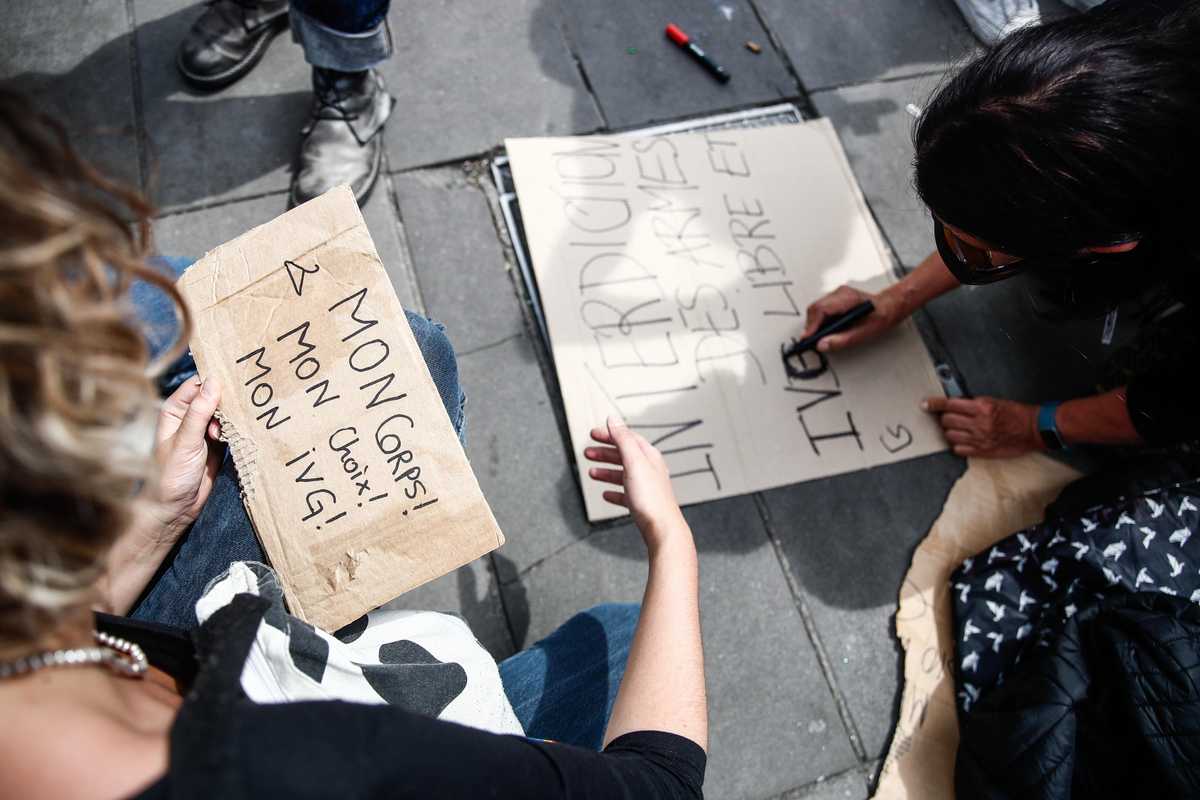 MON CORPS!
MON Choix!
MON iVG!
INTERDICTION
DES ARMES
IVG LIBRE ET
G